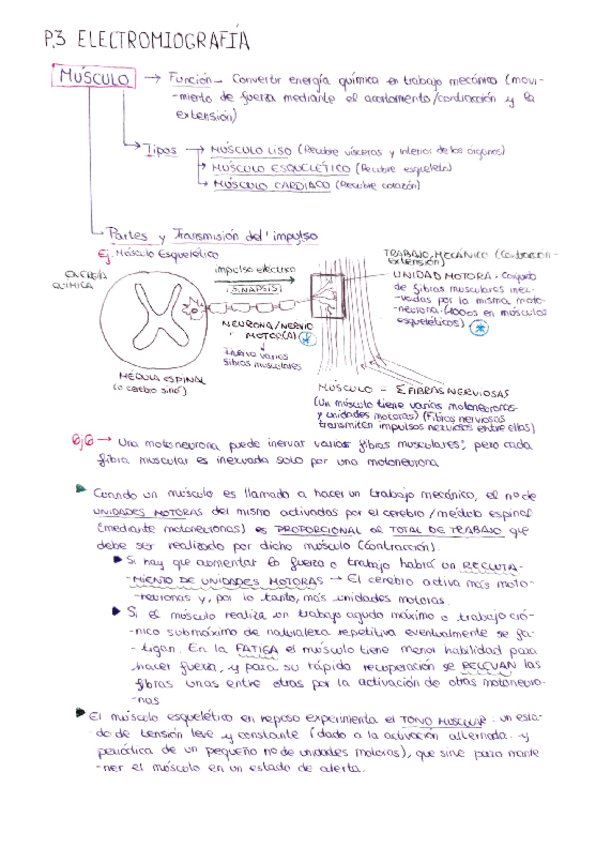 P.3 ELECTROMIOGRAFÍA
MÚSCULO → Función – Convertir energía química en trabajo mecánico (movi-
-miento de fuerza mediante el acortamiento/contracción y la
extensión)
Tipos → MÚSCULO LISO (Recubre vísceras y interior de los órganos)
→ MÚSCULO ESQUELÉTICO (Recubre esqueleto)
→ MÚSCULO CARDIACO (Recubre corazón)
Partes y Transmisión del impulso
Ej. Músculo Esquelético
ENERGÍA
QUIMICA
impulso eléctrico
(SINAPSIS)
NEURONA/NERVIO
MOTOR(A)
Inerva varias
fibras musculares
MÉDULA ESPINAL
(o cerebro sino)
TRABAJO MECÁNICO (Contracción-
extensión)
UNIDAD MOTORA: Conjunto
de fibras musculares iner-
-vadas por la misma moto-
-neurona.
en músculos
esqueléticos)
MÚSCULO = Σ FIBRAS NERVIOSAS
(Un músculo tiene varias motoneuronas
y unidades motoras) (Fibras nerviosas
transmiten impulsos nerviosos entre ellas)
Ojo → Una motoneurona puede inervar varias fibras musculares; pero cada
fibra muscular es inervada solo por una motoneurona
Cuando un músculo es llamado a hacer un trabajo mecánico, el nº de
UNIDADES MOTORAS del mismo activadas por el cerebro/médula espinal
(mediante motoneuronas) es PROPORCIONAL al TOTAL DE TRABAJO que
debe ser realizado por dicho músculo (contracción).
Si hay que aumentar la fuerza o trabajo habrá un RECLUTA-
-MIENTO DE UNIDADES MOTORAS → El cerebro activa más moto-
-neuronas y, por lo tanto, más unidades motoras.
Si el músculo realiza un trabajo agudo máximo o trabajo cró-
-nico submáximo de naturaleza repetitiva eventualmente se fa-
-tigan. En la FATIGA el músculo tiene menor habilidad para
hacer fuerza, y para su rápida recuperación se RELEVAN las
fibras unas entre otras por la activación de otras motoneuro-
-nas
El músculo esquelético en reposo experimenta el TONO MUSCULAR: un esta-
-do de tensión leve y constante (dado a la activación alternada y
periódica de un pequeño nº de unidades motoras), que sirve para mante-
-ner el músculo en un estado de alerta.